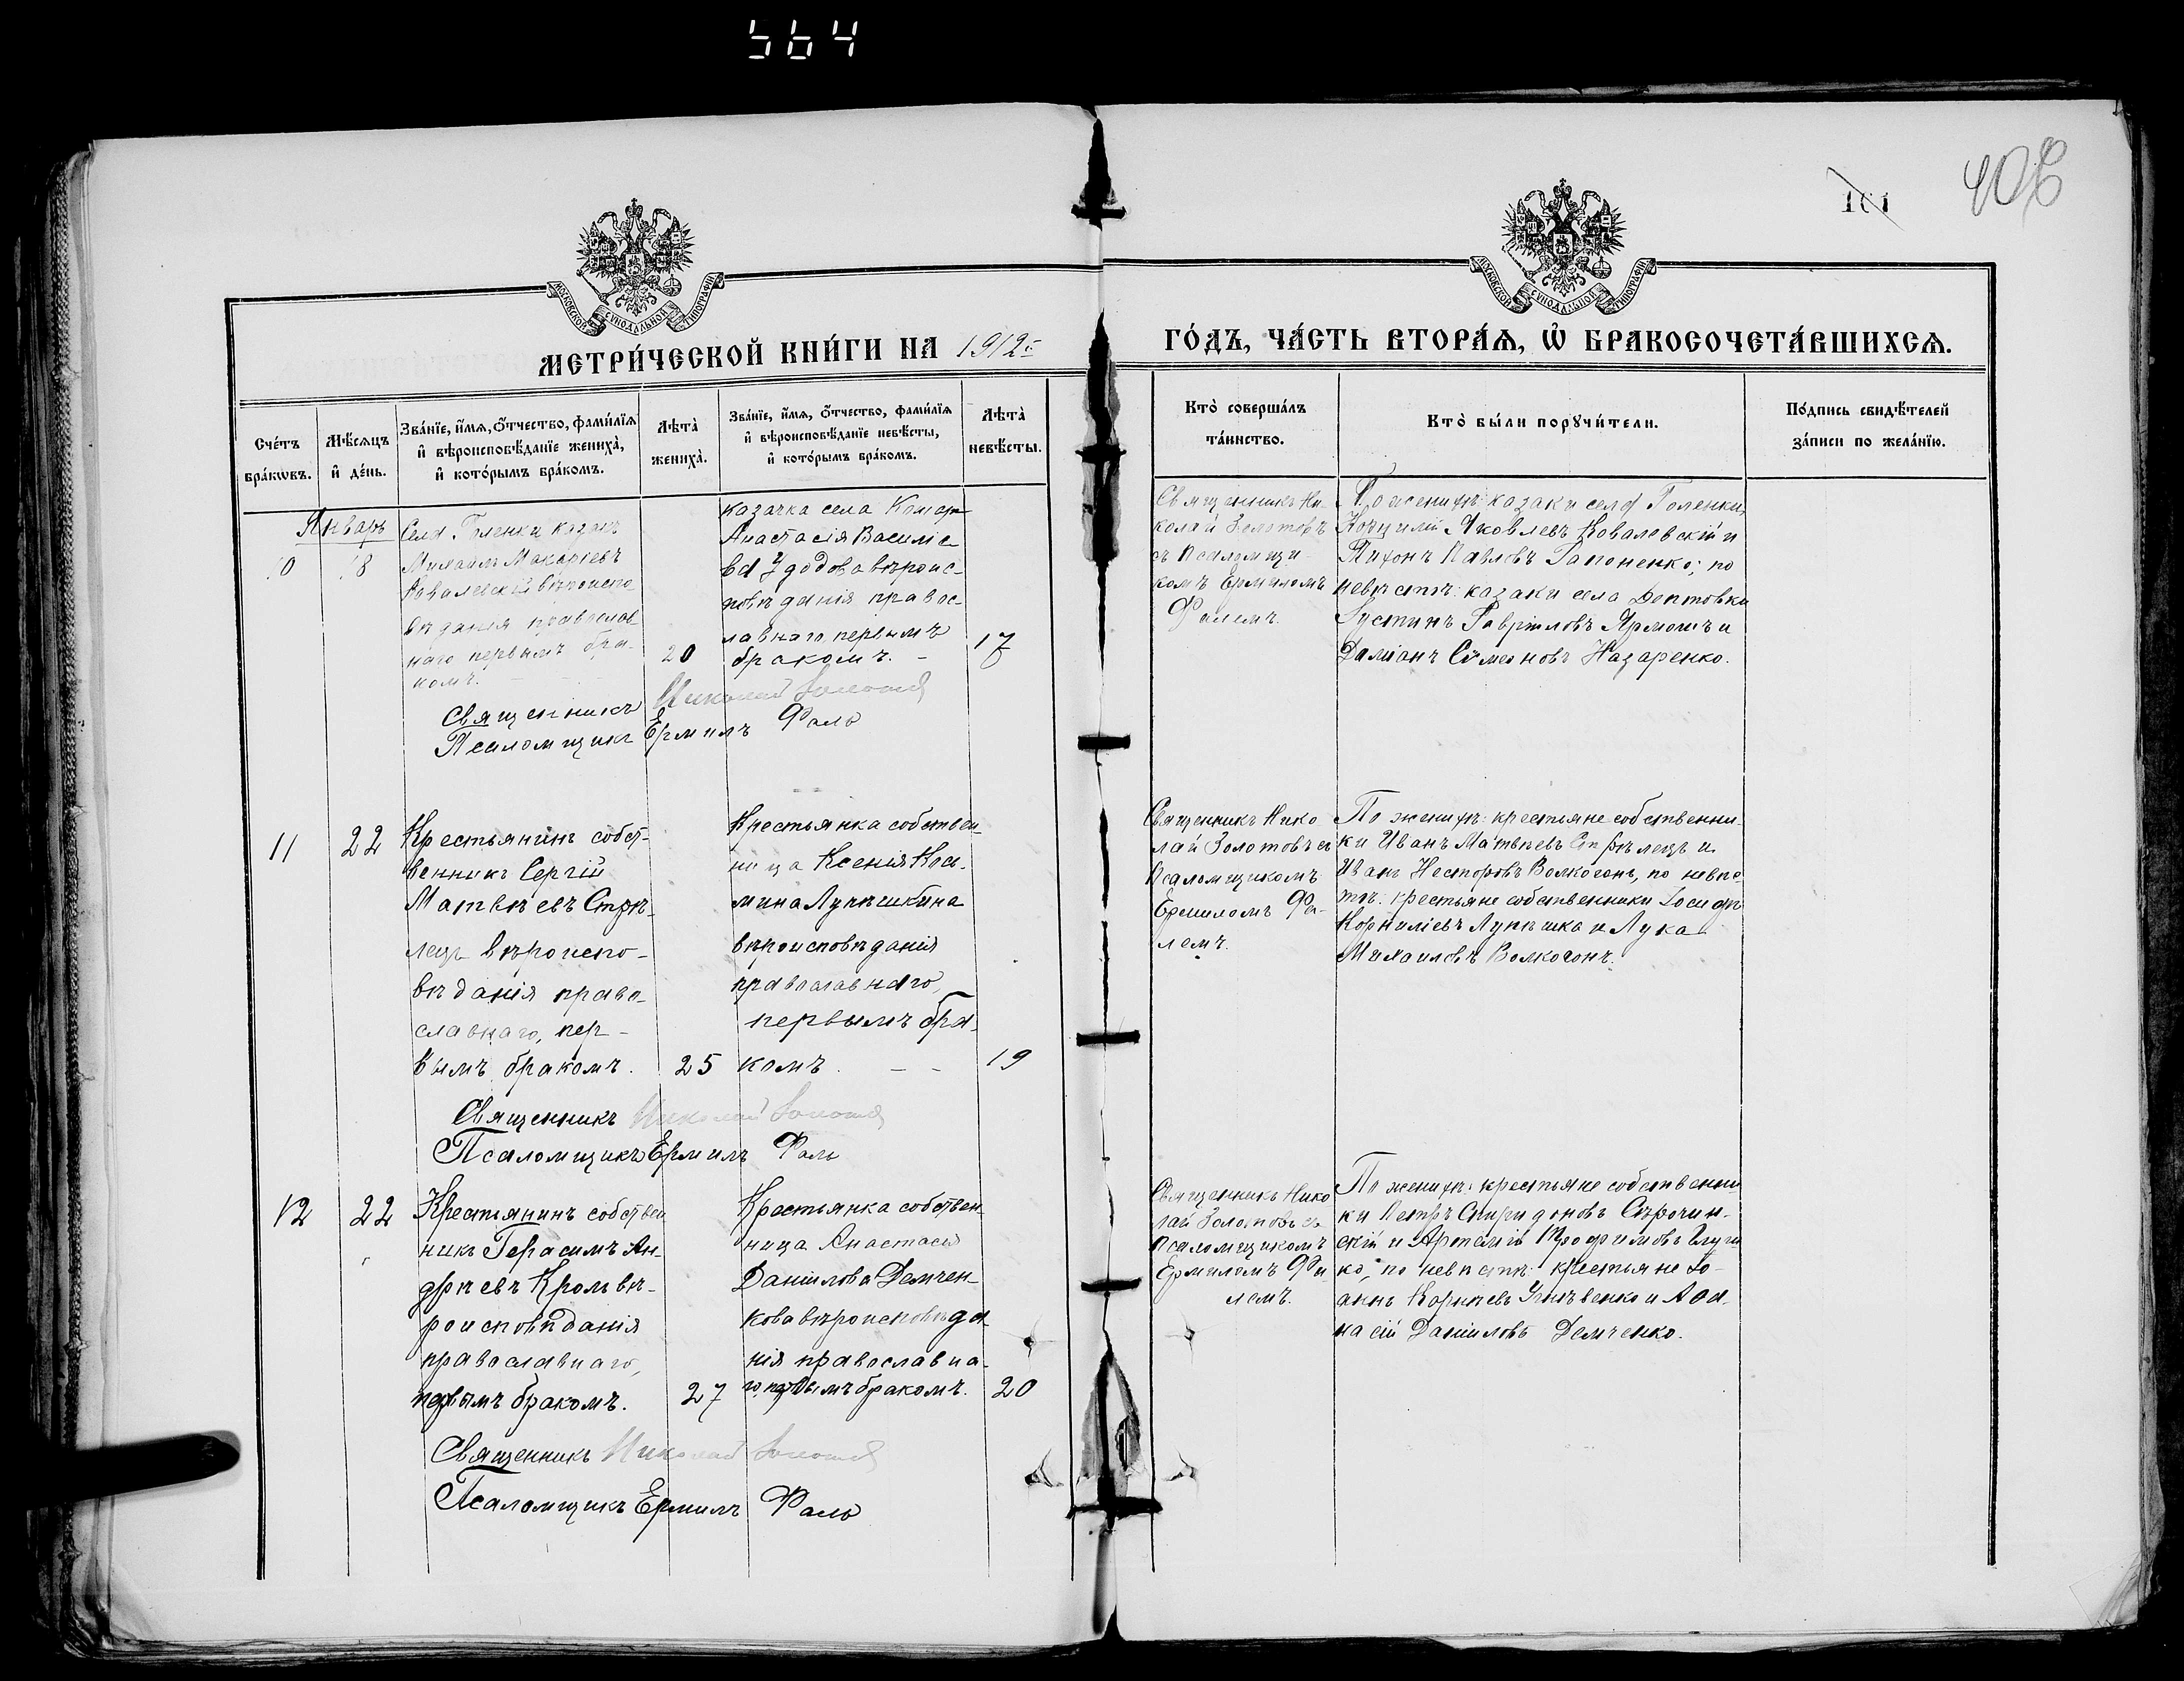 564
101
408
МОСКОВСКОЙ СУНОДАЛЬНОЙ ТИПОГРАФІИ
МОСКОВСКОЙ СУНОДАЛЬНОЙ ТИПОГРАФІИ
МЕТРИ́ЧЕСКОЙ КНИ́ГИ НА 1912 г.
ГО́ДЪ, ЧА́СТЬ ВТОРА́Ѧ, Ѡ БРАКОСОЧЕТА́ВШИХСѦ.
Сче́тъ бра́кѡвъ.
Мѣ́сѧцъ и҆ де́нь.
Зва́нїе, и҆́мѧ, ѻ҆́тчество, фами́лїѧ и҆ вѣроисповѣ́данїе жениха̀, и҆ кото́рымъ бра́комъ.
Лѣта̀ жениха̀.
Зва́нїе, и҆́мѧ, ѻ҆́тчество, фами́лїѧ и҆ вѣроисповѣ́данїе невѣ́сты, и҆ кото́рымъ бра́комъ.
Лѣта̀ невѣ́сты.
Кто̀ соверша́лъ та́инство.
Кто̀ бы́ли порꙋчи́тели.
По́дпись свидѣ́телей за́писи по жела́нїю.
Январь
10
18
Села Голенки казакъ
Михаилъ Макаріевъ
Ковалевскій вѣроиспо
вѣданія православ
наго первымъ бра-
комъ.
20
казачка села
Анастасія Василіе
ва Удодова вѣроис-
повѣданія правос-
лавнаго, первымъ
бракомъ. -
17
Священникъ Ни-
колай Золотовъ
съ Псаломщи-
комъ Ермиломъ
Фалемъ.
По женихѣ: казаки села Голенки,
Яковлевъ Ковалевскій и
Тихонъ Павловъ Гапоненко; по
невѣстѣ: казаки села Дептовки
Іустинъ Гавріиловъ Ярмошъ и
Даміанъ Симеоновъ Назаренко.
Священникъ Николай Золотов
Псаломщикъ Ермилъ Фаль
11
22
Крестьянинъ собст-
венникъ Сергій
Матвѣевъ Стрѣ-
лецъ вѣроиспо-
вѣданія право-
славнаго, пер-
вымъ бракомъ.
25
Крестьянка собствен-
ница Ксенія Кос-
мина Лупѣшкина
вѣроисповѣданія
православнаго,
первымъ бра-
комъ. - -
19
Священникъ Нико
лай Золотовъ съ
Псаломщикомъ
Ермиломъ Фа-
лемъ.
По женихѣ: крестьяне собственни-
ки Иванъ Матвѣевъ Стрѣлецъ и
Иванъ Несторовъ Волкогонъ, по невѣс-
тѣ: крестьяне собственники Іосифъ
Корниліевъ Лупѣшка и Лука
Михаиловъ Волкогонъ.
Священникъ Николай Золотов
Псаломщикъ Ермилъ Фаль
12
22
Крестьянинъ собствен
никъ Герасимъ Ан-
дрѣевъ Кроль вѣ-
роисповѣданія
православнаго,
первымъ бракомъ.
27
Крестьянка собствен
ница Анастасія
Даніилова Демчен-
кова вѣроисповѣда
нія православна-
го, первымъ бракомъ.
20
Священникъ Нико
лай Золотовъ съ
Псаломщикомъ
Ермиломъ Фа
лемъ.
По женихѣ: крестьяне собственни
ки Петръ Спиридоновъ Сѣрочин-
скій и Артемій Трофимовъ
ко; по невѣстѣ: крестьяне Іо-
аннъ и Афа-
насій Даніиловъ Демченко.
Священникъ Николай Золотов
Псаломщикъ Ермилъ Фаль